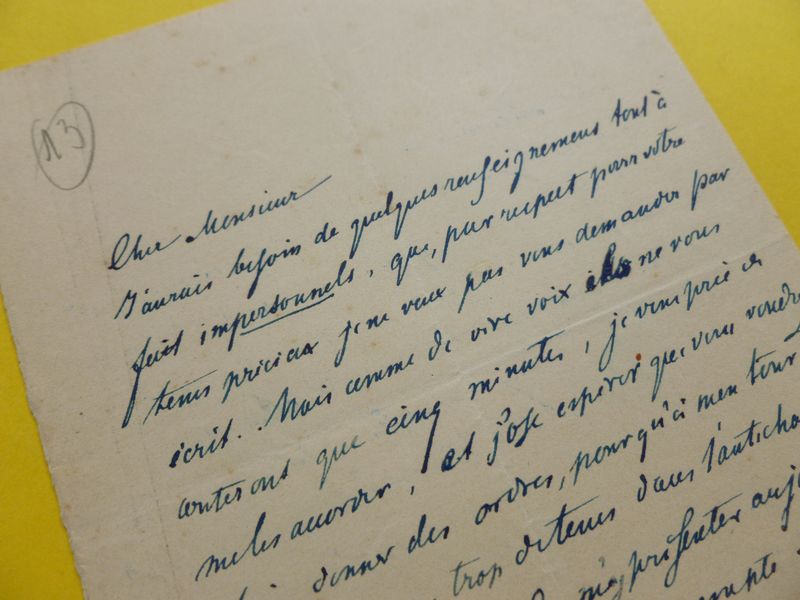 13
Cher Monsieur
J'aurais besoin de quelques renseignemens tout à
fait impersonnels, que, par respect pour votre
tems précieux je ne veux pas vous demander par
écrit. Mais comme de vive voix ils ne vous
couteront que cinq minutes, je vous prie de
me les accorder, et j'ose espérer que vous voudrez
donner des ordres, pourqu'à mon tour
trop detenus dans l'anticha
m'y présenter auj
compte